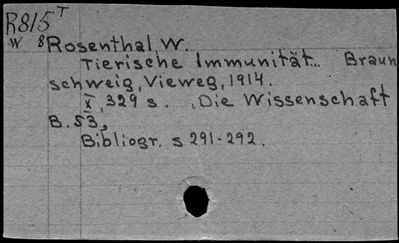 R815 T
W 8 Rosenthal, W.
Tierische Immunität.. Braun
schweig, Vieweg, 1914.
X, 329 s. , Die Wissenschaft
B. 53,
Bibliogr. s 291-292.